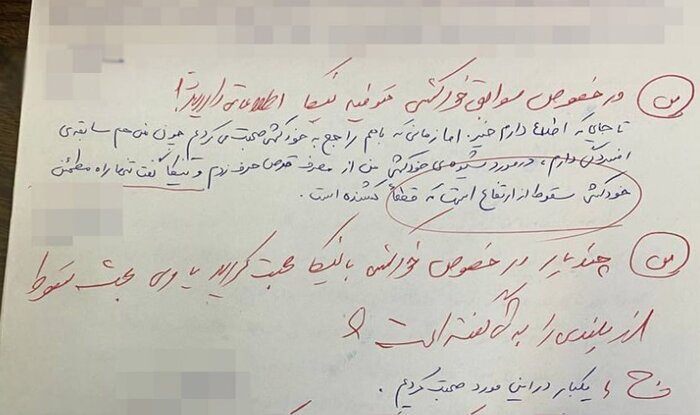 س) در خصوص سوابق خودکشی متوفیه نیکا اطلاعاتی دارید؟
تا جایی که اطلاع دارم خیر. اما زمانی که باهم راجع به خودکشی صحبت می کردیم چون من هم سابقه‌ی
افسردگی دارم، در مورد شیوه‌ی خودکشی من از مصرف قرص حرف زدم و نیکا گفت تنها راه مطمئن
خودکشی سقوط از ارتفاع است که قطعاً کشنده است.
س) چند بار در خصوص خودکشی با نیکا صحبت کردید یا وی بحث سقوط
از بلندی را به گفته است؟
ج) یکبار در این مورد صحبت کردیم.